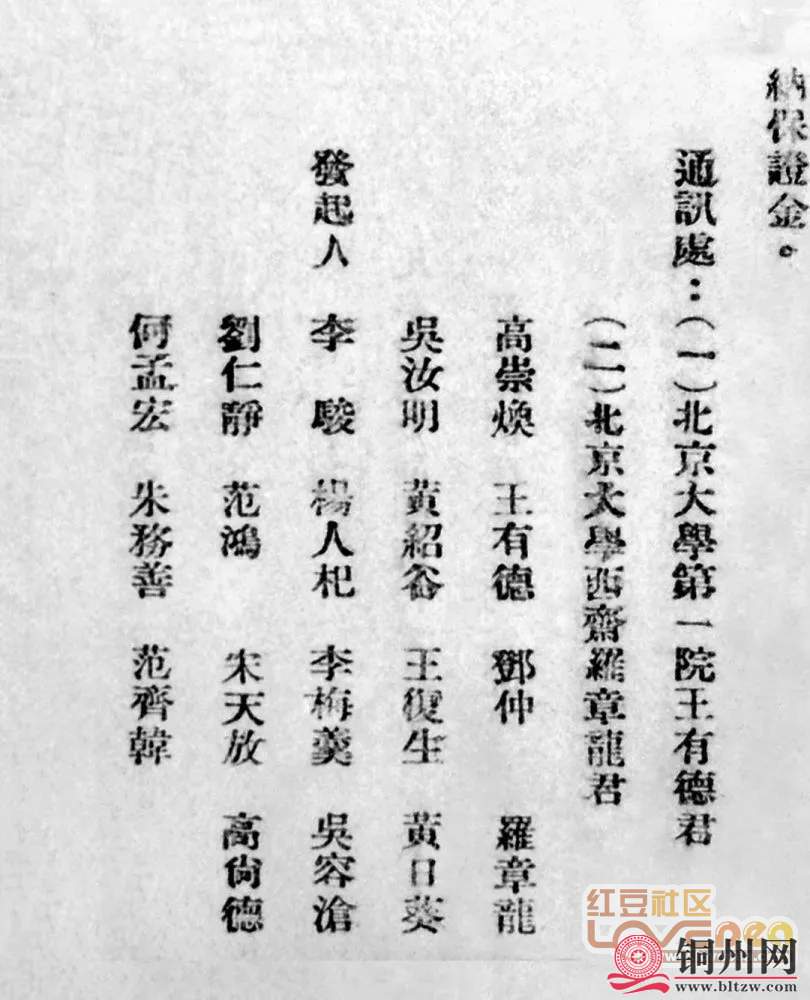 納保證金。
通訊處：(一)北京大學第一院王有德君
(二)北京大學西齋羅章龍君
高崇煥 王有德 鄧仲 羅章龍
吳汝明 黃紹谷 王復生 黃日葵
發起人 李 駿 楊人杞 李梅羹 吳容滄
劉仁靜 范鴻 宋天放 高尙德
何孟宏 朱務善 范齊韓
红豆社区
铜州网
www.bltzw.com